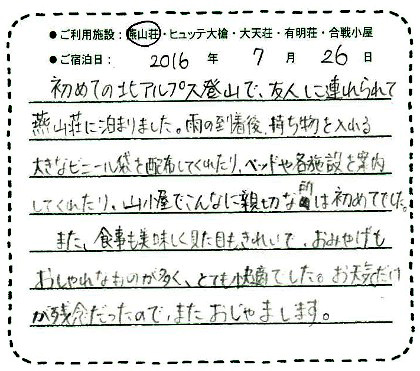 ●ご利用施設：燕山荘・ヒュッテ大槍・大天荘・有明荘・合戦小屋
●ご宿泊日： 2016 年 7 月 26 日
初めての北アルプス登山で、友人に連れられて
燕山荘に泊まりました。雨の到着後、持ち物を入れる
大きなビニール袋を配布してくれたり、ベッドや各施設を案内
してくれたり、山小屋でこんなに親切な は初めてでした。
また、食事も美味しく見た目もきれいで、おみやげも
おしゃれなものが多く、とても快適でした。お天気だけ
が残念だったので、またおじゃまします。